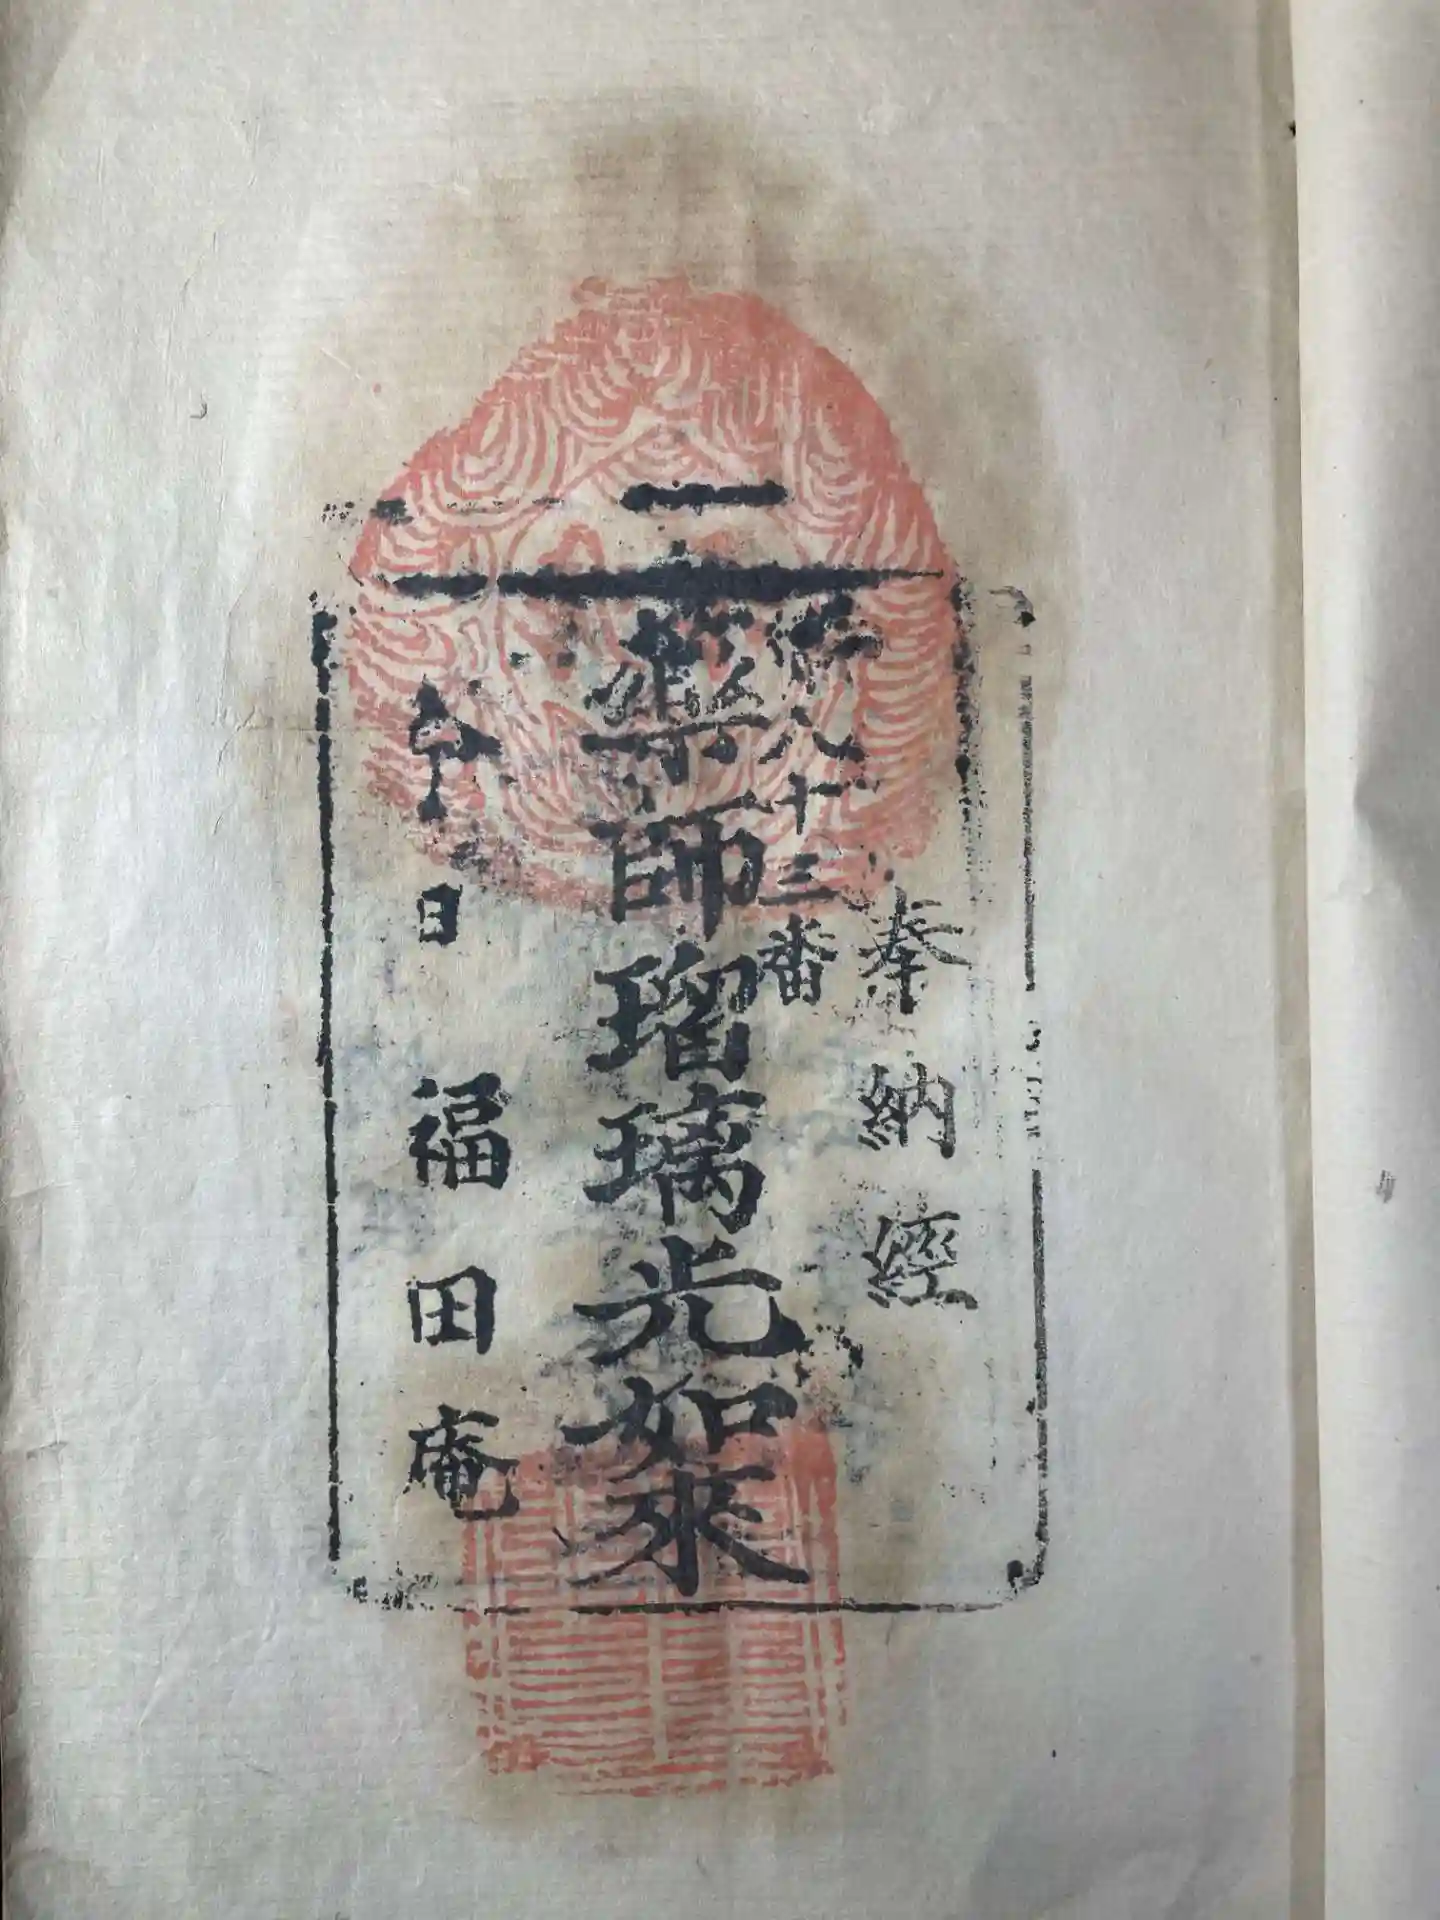 奉納經
八十三番
藥師瑠璃光如來
今日 福田庵